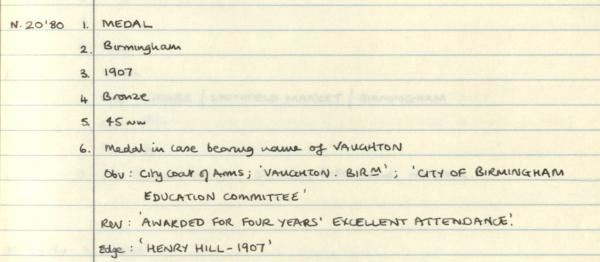 N.20'80 1. MEDAL
2. Birmingham
3. 1907
4 Bronze
5. 45 mm
6. Medal in case bearing name of VAUGHTON
Obv: City Coat of Arms; 'VAUGHTON. BIRM'; 'CITY OF BIRMINGHAM
EDUCATION COMMITTEE'
Rev: 'AWARDED FOR FOUR YEARS' EXCELLENT ATTENDANCE'.
Edge: 'HENRY HILL - 1907'